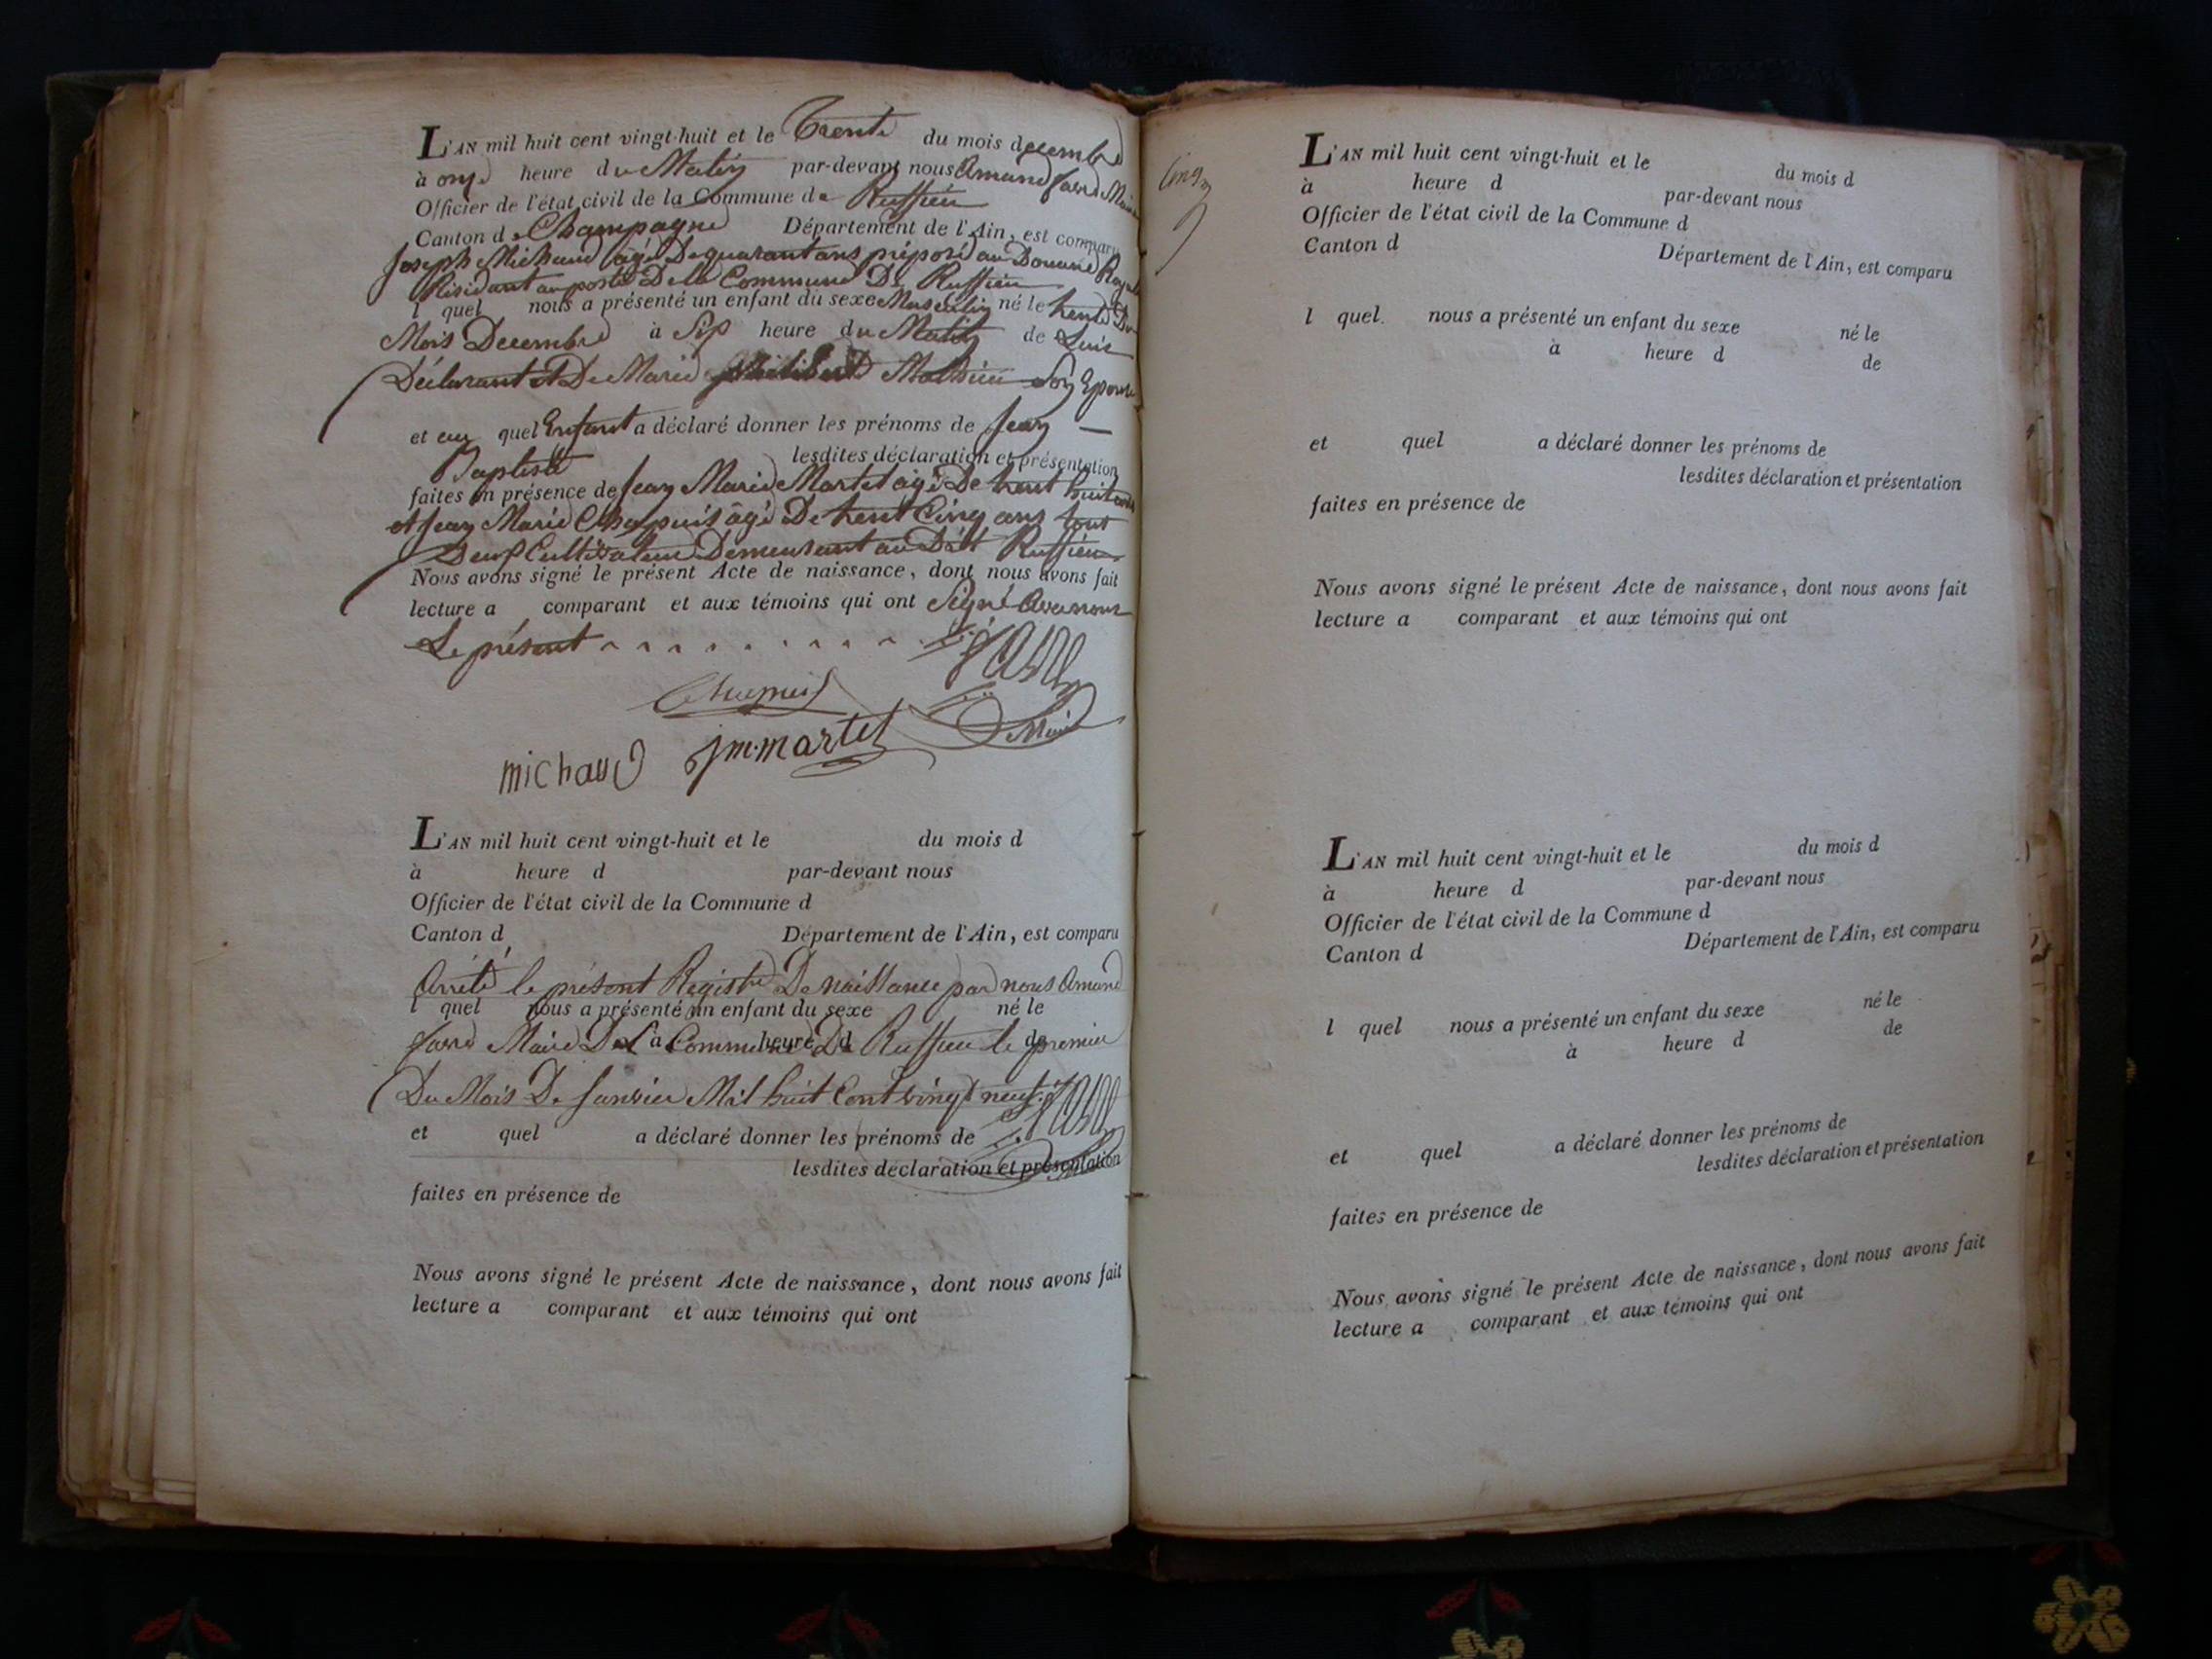 L'AN mil huit cent vingt-huit et le Trente du mois decembre
à onze heure du Matin par-devant nous Amand favre Maire
Officier de l'état civil de la Commune de Ruffieu
Canton de Champagne Département de l'Ain, est comparu
Joseph Michaud âgé De quarant ans préposé au Douane Royal
Residant au poste De la Commune De Ruffieu
l quel nous a présenté un enfant du sexe Masculin né le trente Du
Mois Decembre à Six heure du Matin de Luis
Déclarant et De Marie Mathieu Son Epouse
et au quel Enfant a déclaré donner les prénoms de Jean
Baptiste lesdites déclaration et présentation
faites en présence de Jean Marie Martet âgé De trent huit ans
et Jean Marie Chapuis âgé De trent Cinq ans tout
Deux Cultivateur Demeurant au Dit Ruffieu
Nous avons signé le présent Acte de naissance, dont nous avons fait
lecture a comparant et aux témoins qui ont Signé Avec nous
Le présent favre
Chapuis Maire
michaud jm.martet
L'AN mil huit cent vingt-huit et le du mois d
à heure d par-devant nous
Officier de l'état civil de la Commune d
Canton d Département de l'Ain, est comparu
Arrêté le présent Registre De naissance par nous Amand
l quel nous a présenté un enfant du sexe né le
favre Maire De La Commune De Ruffieu le premier
à heure d de
Du Mois De Janvier Mil huit Cent vingt neuf favre
et quel a déclaré donner les prénoms de
lesdites déclaration et présentation
faites en présence de
Nous avons signé le présent Acte de naissance, dont nous avons fait
lecture a comparant et aux témoins qui ont
Cinq
L'AN mil huit cent vingt-huit et le du mois d
à heure d par-devant nous
Officier de l'état civil de la Commune d
Canton d Département de l'Ain, est comparu
l quel. nous a présenté un enfant du sexe né le
à heure d de
et quel a déclaré donner les prénoms de
lesdites déclaration et présentation
faites en présence de
Nous avons signé le présent Acte de naissance, dont nous avons fait
lecture a comparant et aux témoins qui ont
L'AN mil huit cent vingt-huit et le du mois d
à heure d par-devant nous
Officier de l'état civil de la Commune d
Canton d Département de l'Ain, est comparu
l quel nous a présenté un enfant du sexe né le
à heure d de
et quel a déclaré donner les prénoms de
lesdites déclaration et présentation
faites en présence de
Nous avons signé le présent Acte de naissance, dont nous avons fait
lecture a comparant et aux témoins qui ont